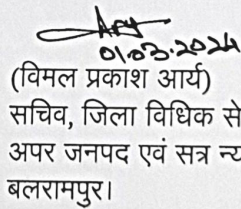 01.03.2024
(विमल प्रकाश आर्य)
सचिव, जिला विधिक से
अपर जनपद एवं सत्र न्य
बलरामपुर।